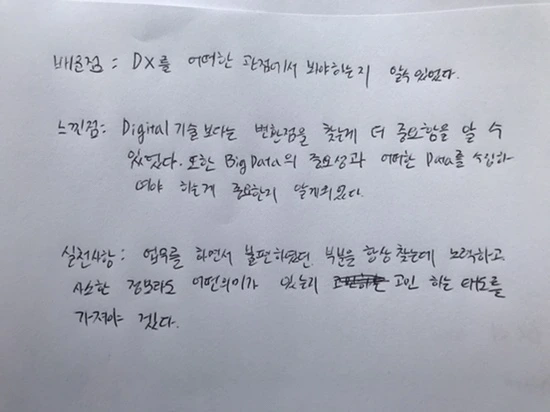 배운점 : DX를 어떠한 관점에서 봐야하는지 알수 있었다.
느낀점 : Digital 기술 보다는 변환점을 찾는게 더 중요함을 알 수
있었다. 또한 Big Data의 중요성과 어떠한 Data를 수집하
여야 하는게 중요한지 알게되었다.
실천사항 : 업무를 하면서 불편하였던 부분을 항상 찾는데 노력하고
사소한 정보라도 어떤의미가 있는지 고민 하는 태도를
가져야 겠다.